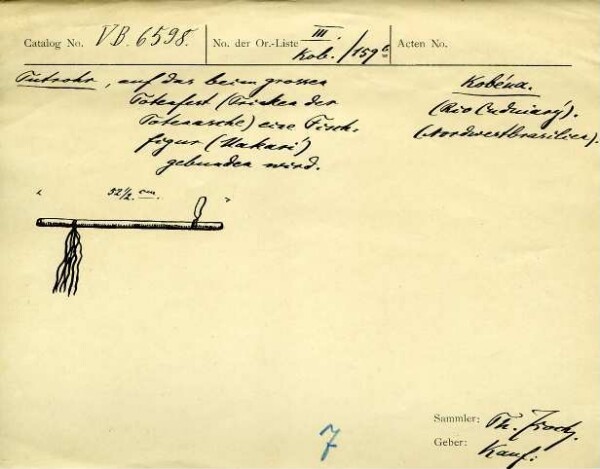 Catalog No. VB. 6598.
No. der Or.-Liste III. Kob./159 b
Acten No.
Tutrohr, auf das beim grossen
Totenfest (Trinken der
Totenasche) eine Fisch-
figur (Uakari)
gebunden wird.
Kobéua.
(Rio Cuduiarý).
(Nordwestbrasilien).
52 1/2 cm.
7
Sammler: Th. Koch.
Geber: Kauf.